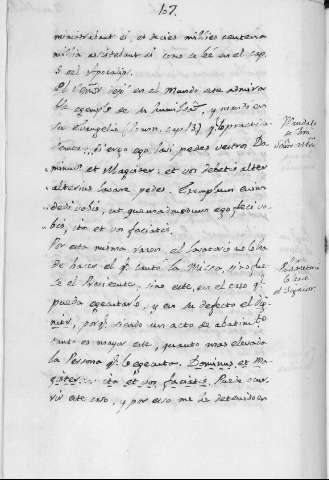 107.
ministrabant ei, et decies millies centena
millia assistebant ei como se lee en el cap.
5 del Apocalip.
El Señor dejó en el Mundo este admira-
ble exemplo de su humildad, y mandó en
su Evangelio (Joann. cap. 13) que lo practica-
semos: Si ergo ego lavi pedes vestros Do-
minus et Magister, et vos debetis alter
alterius lavare pedes. Exemplum enim
dedi vobis, ut quemadmodum ego feci vo-
bis, ita et vos faciatis.
Por esta misma razon, el lavatorio
de hacer el que cantó la Missa, sino fue-
se el Presidente, sino este, en el caso que
pueda egecutarlo, y en su defecto el Dig-
nior, porque siendo un acto de abatimto
tanto es mayor este, quanto mas elevada
la Persona que lo egecuta. Dominus et Ma-
gister: ita et vos faciatis. Puede ocur-
rir este caso, y por eso me he detenido en
Mandato
El Lavatorio
lo hace
el Dignior.